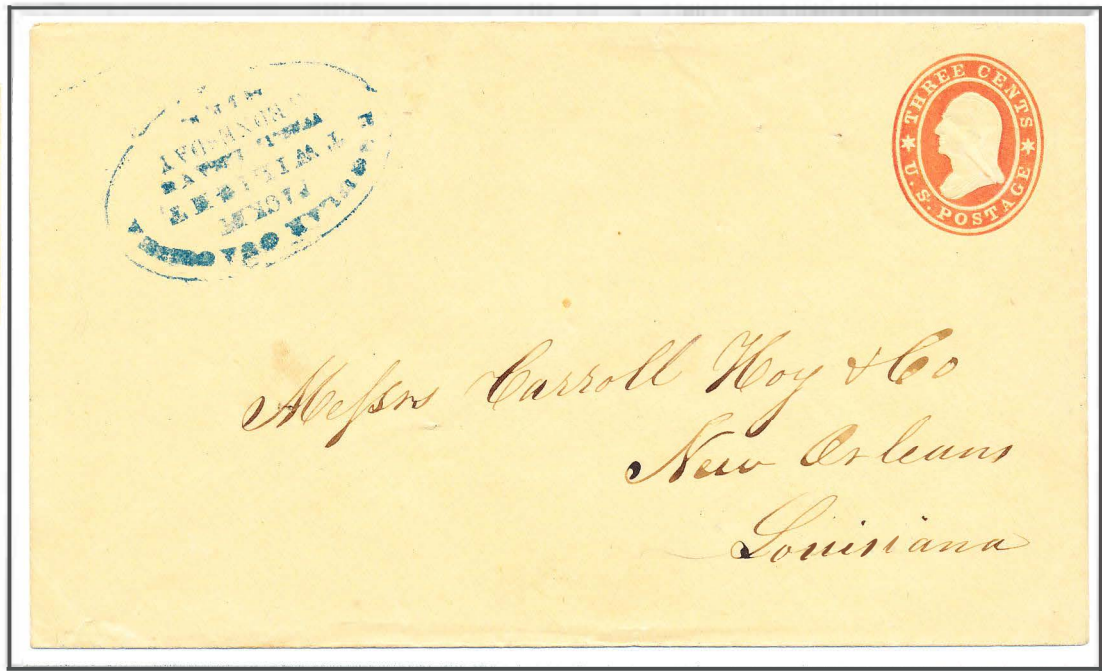 PACKET
THREE CENTS
U.S. POSTAGE
Messrs Carroll Hoy & Co
New Orleans
Louisiana